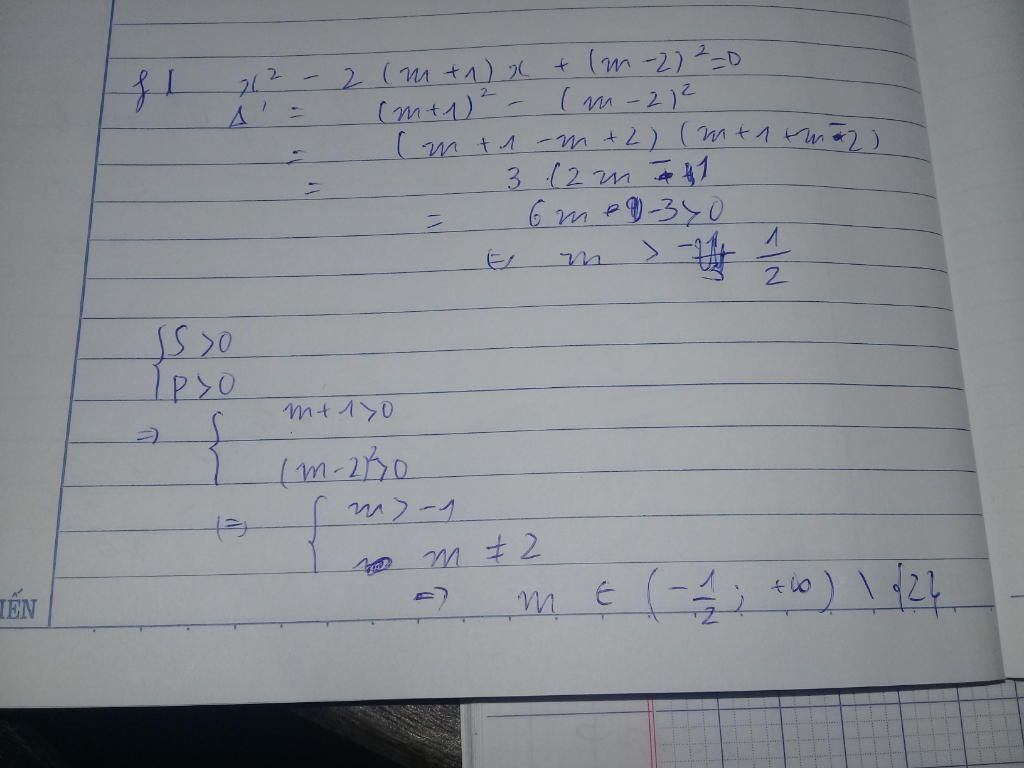 f) x² - 2(m+1)x + (m-2)²=0
Δ' = (m+1)² - (m-2)²
= (m+1-m+2)(m+1+m-2)
= 3(2m-1
= 6m-3>0
m > 1/2
{S>0
{P>0
=> { m+1>0
(m-2)²>0
(=) { m>-1
m ≠ 2
=> m ∈ (-1/2; +∞) \ {2}
IẾN